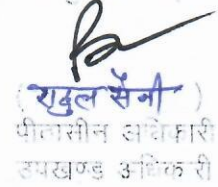 (राहुल सैनी)
पीठासीन अधिकारी
उपखण्ड अधिकारी